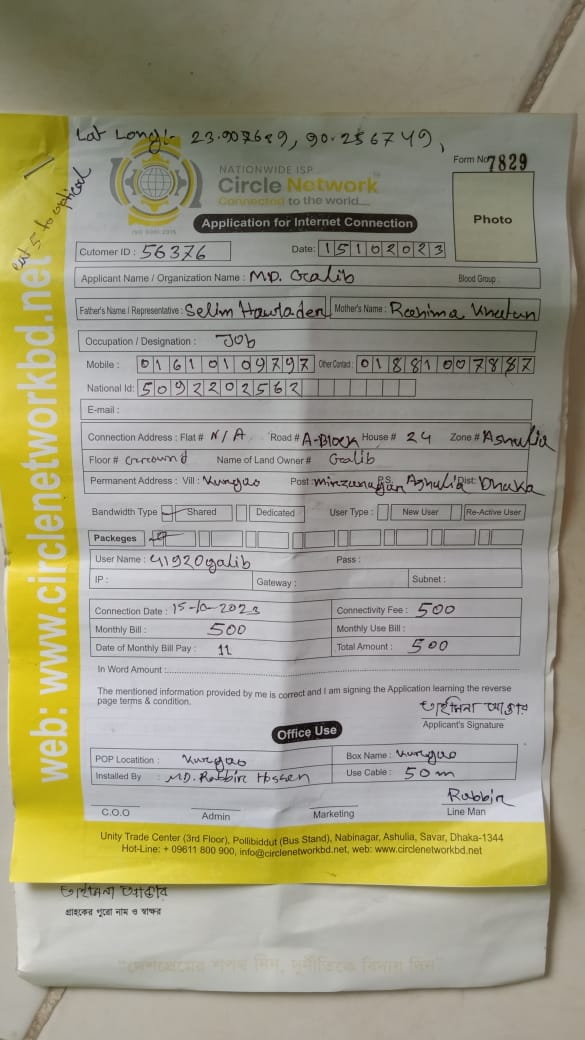 Lat Long:- 23.907689, 90.256749,
cat 5 to optical
NATIONWIDE ISP
Circle Network™
Connected to the world....
ISO 9001:2015
Form No 7829
Application for Internet Connection
Photo
Cutomer ID : 56376 Date: 15102023
Applicant Name / Organization Name : MD. Galib Blood Group :
Father's Name / Representative : Selim Hawlader Mother's Name : Rashima Khatun
Occupation / Designation : Job
Mobile : 01610109797 Other Contact : 01881007887
National Id: 5092202562
E-mail :
Connection Address : Flat # N/A Road # A-Block House # 24 Zone # Ashulia
Floor # Ground Name of Land Owner # Galib
Permanent Address : Vill : Kurgao Post : Mirzanagar P.S: Ashulia Dist: Dhaka
Bandwidth Type Shared Dedicated User Type : New User Re-Active User
Packeges
User Name : 41920galib Pass :
IP : Gateway : Subnet :
Connection Date : 15-10-2023 Connectivity Fee : 500
Monthly Bill : 500 Monthly Use Bill :
Date of Monthly Bill Pay : 11 Total Amount : 500
In Word Amount :
The mentioned information provided by me is correct and I am signing the Application learning the reverse
page terms & condition.
তাহমিনা আক্তার
Applicant's Signature
Office Use
POP Locatition : Kurgao Box Name : Kurgao
Installed By : MD. Rabbir Hossen Use Cable : 50m
Rabbir
C.O.O Admin Marketing Line Man
Unity Trade Center (3rd Floor), Pollibiddut (Bus Stand), Nabinagar, Ashulia, Savar, Dhaka-1344
Hot-Line: + 09611 800 900, info@circlenetworkbd.net, web: www.circlenetworkbd.net
web: www.circlenetworkbd.net
তাহমিনা আক্তার
গ্রাহকের পুরো নাম ও স্বাক্ষর
"দেশপ্রেমের শপথ নিন, দুর্নীতিকে বিদায় দিন"